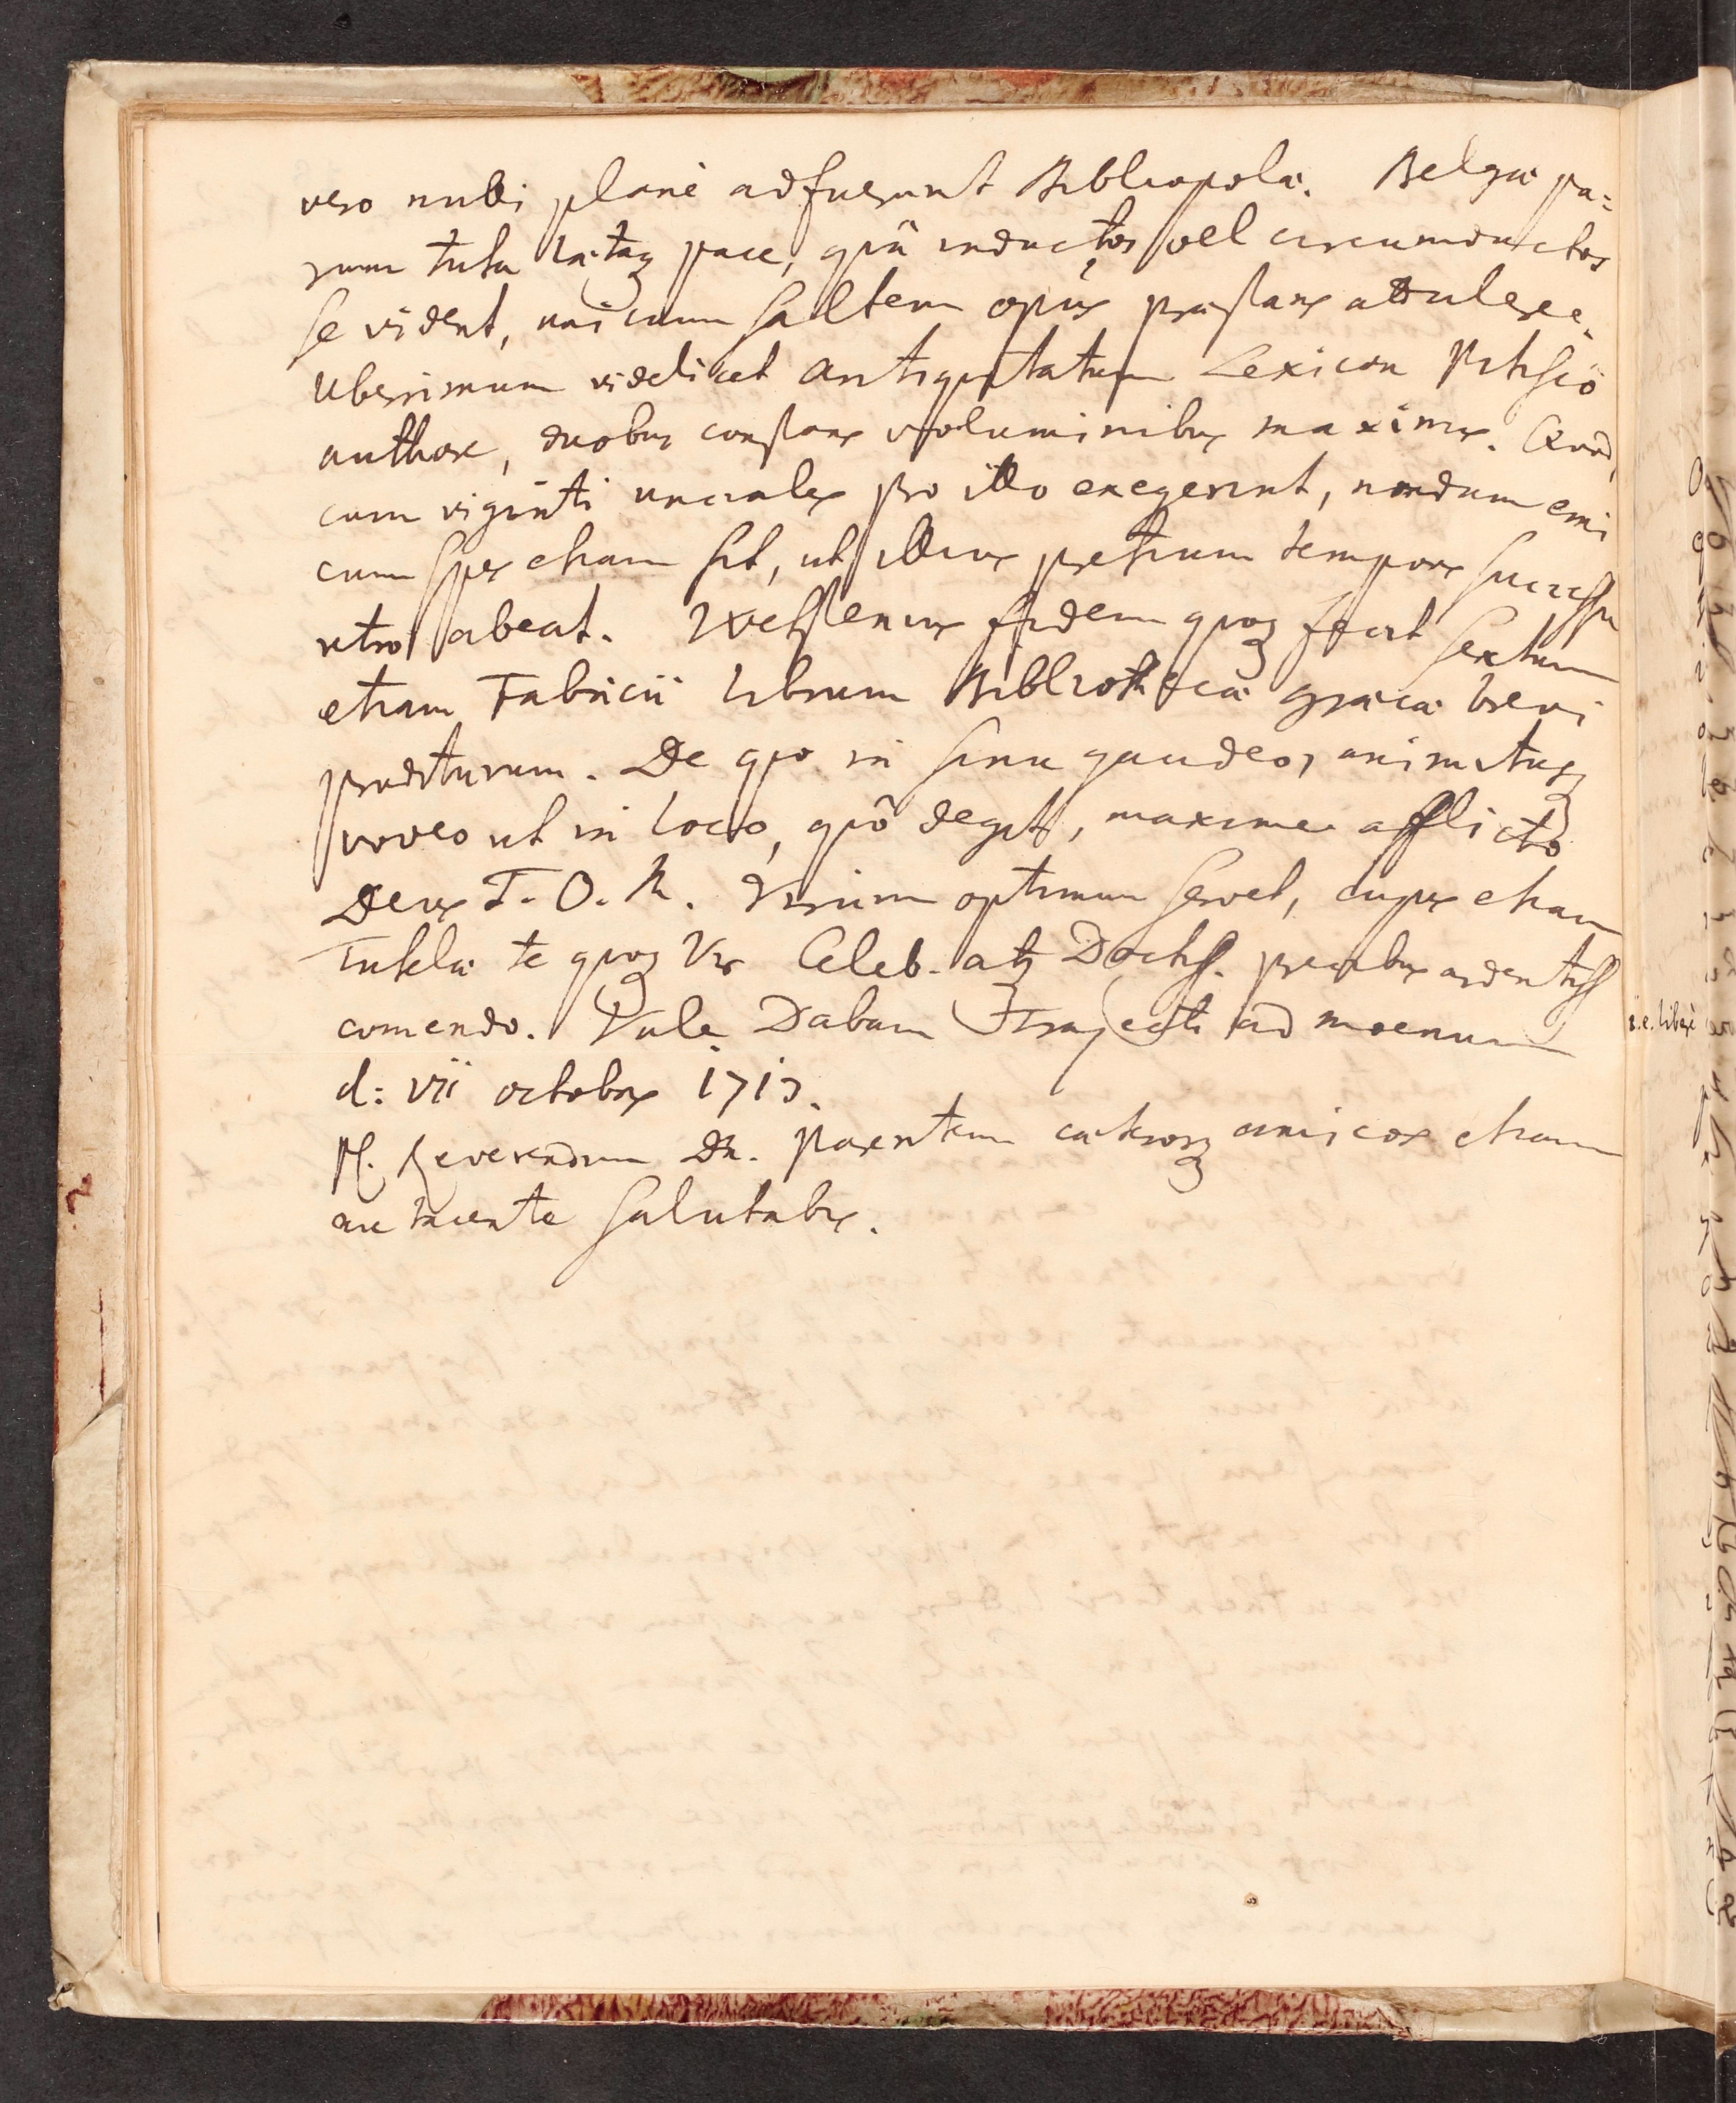 vero nulli planè adfuerunt Bibliopolæ. Belgæ pa=
rum tuta lætaq; pace, quâ inductos vel circumductos
se vident, unicum saltem opus præstans attulere.
Uberrimum videlicet antiquitatum Lexicon Pitiscô
authore, duobus constans voluminibus maximis. Quod,
cum viginti unciales pro illo exegerint, nondum emi
cum spes etiam sit, ut illius pretium temporis successu
retro abeat. Wetstenius fidem quoq; fecit sextum
etiam Fabricii librum Bibliothecæ græcæ brevi
proditurum. De quo in sinu gaudeo, animitusq;
voveo ut in loco, quô degit, maxime afflictô
Deus T. O. M. Virum optimum servet, cujus etiam
Tutelæ te quoq; Vir Celeb. atq; Doctiss. precibus ardentiss
comendo. Vale. Dabam Trajecti ad moenum
d: vii octobris 1713.
Pl. Reverendum Dn. Parentem cæterosq; amicos etiam
me tacente salutabis.
i.e. liberè